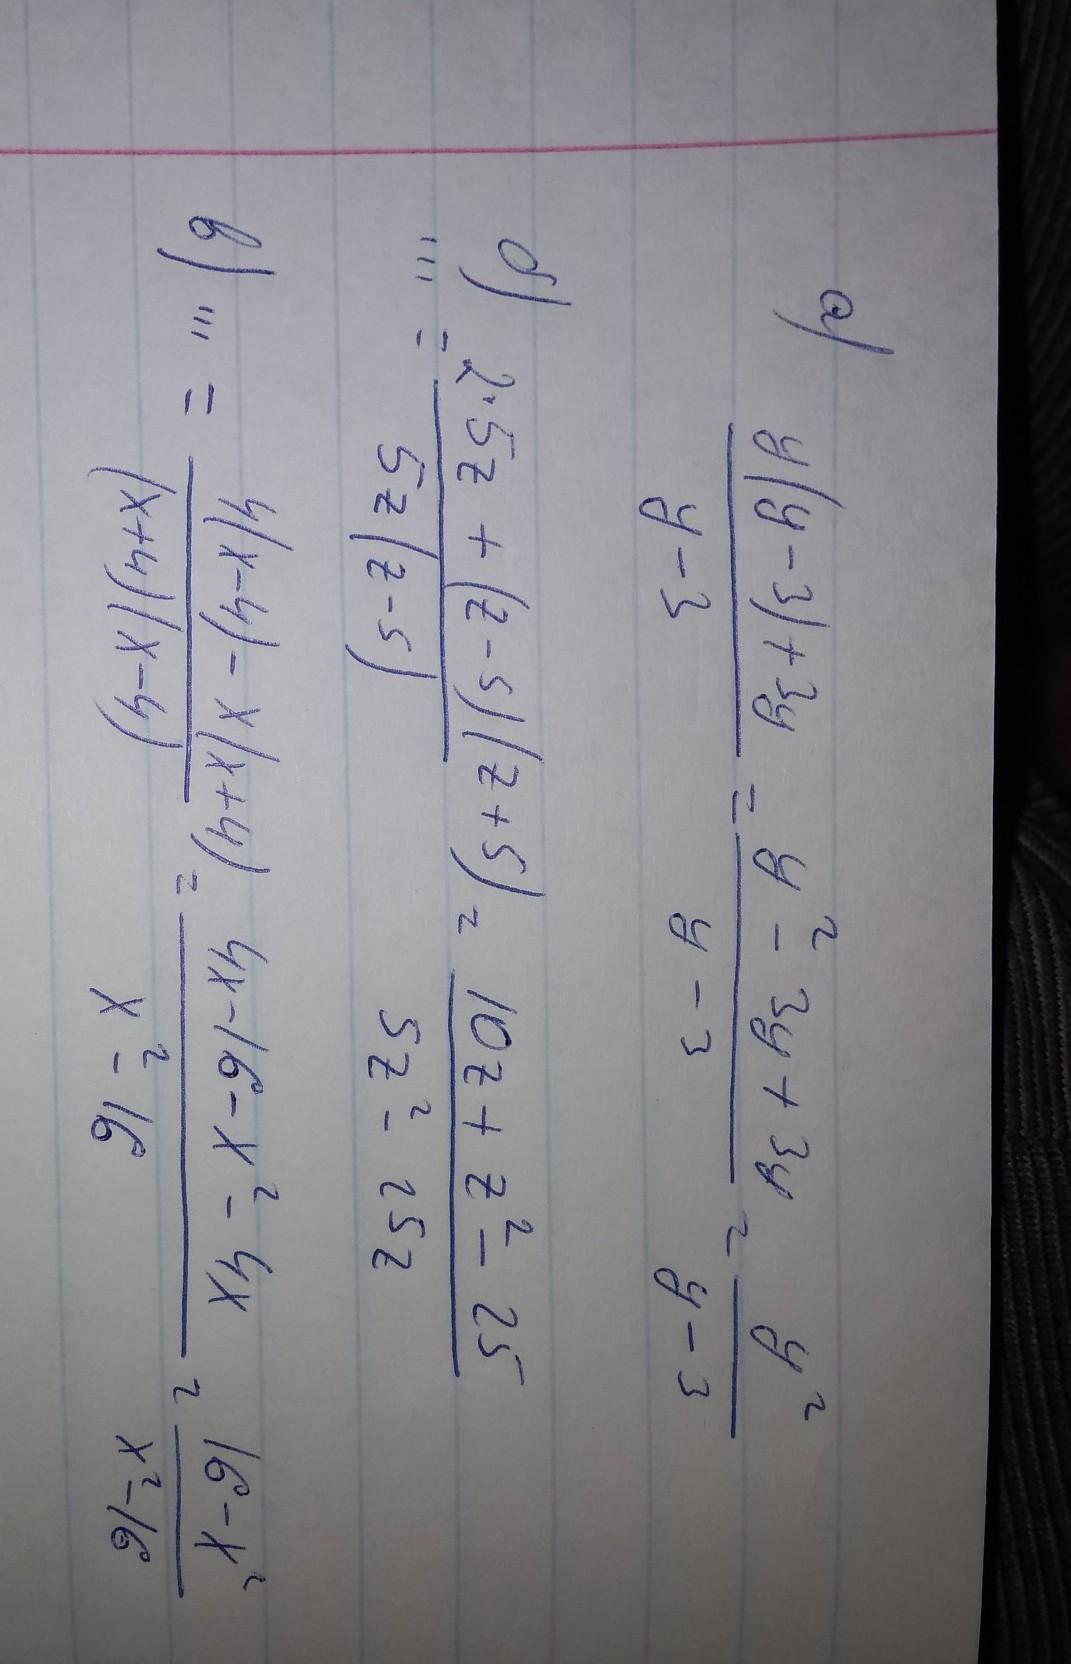 а) y(y-3)+3y / y-3 = y²-3y+3y / y-3 = y² / y-3
б) ... = 2·5z+(z-5)(z+5) / 5z(z-5) = 10z+z²-25 / 5z²-25z
в) ... = 4(x-4)-x(x+4) / (x+4)(x-4) = 4x-16-x²-4x / x²-16 = 16-x² / x²-16